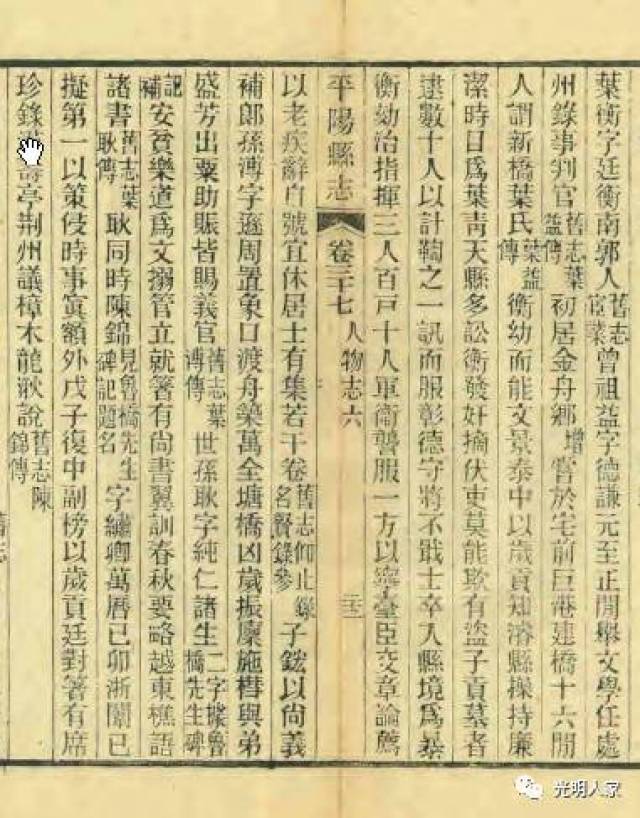 葉衡字廷衡南郭人舊志宦業曾祖益字德謙元至正間舉文學任處
州錄事判官舊志葉益傳初居金舟鄉增嘗於宅前巨港建橋十六間
人謂新橋葉氏葉益傳衡幼而能文景泰中以歲貢知濬縣操持廉
潔時目爲葉靑天縣多訟衡發奸摘伏吏莫能欺有盜子貢墓者
逮數十人以計鞫之一訊而服彰德守將不戢士卒入縣境爲暴
衡劾治指揮三人百戸十人軍衞讋服一方以寧臺臣交章論薦
平陽縣志 卷三十七 人物志六
以老疾辭自號宜休居士有集若干卷舊志仰止錄名賢錄參子鋐以尚義
補郎孫溥字遜周置象口渡舟築萬全塘橋凶歲振廩施槥與弟
盛芳出粟助賑皆賜義官舊志葉溥傳世孫耿字純仁諸生二字據魯橋先生碑
記補安貧樂道爲文搦管立就箸有尚書翼訓春秋要略越東樵語
諸書舊志葉耿傳耿同時陳錦見魯橋先生碑記題名字繡卿萬曆己卯浙闈已
擬第一以策侵時事寘額外戊子復中副榜以歲貢廷對箸有席
珍錄壽亭荆州議樟木龍湫說舊志陳錦傳
舊志
光明人家